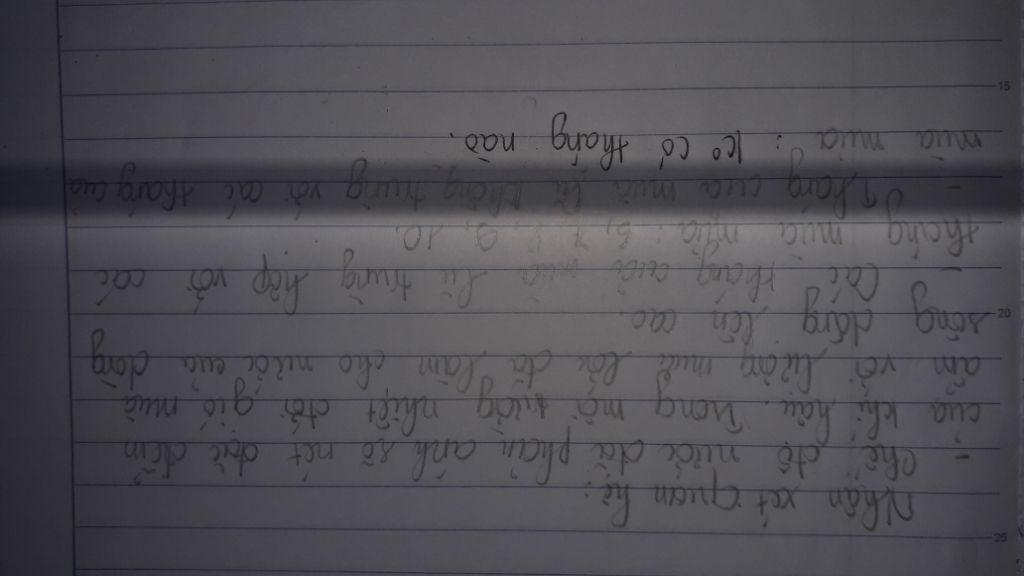 Nhận xét quan hệ:
- chế độ nước đã phản ánh rõ nét đặc điểm
của khí hậu. Trong môi trường nhiệt đới gió mùa
ẩm với lượng mưa lớn đã làm cho nước của dòng
sông dâng lên cao.
- Các tháng của mùa lũ trùng hợp với các
tháng mùa mưa: 7, 8, 9, 10.
- Tháng của mùa lũ không trùng với các tháng của
mùa mưa : ko có tháng nào.
15
20
25